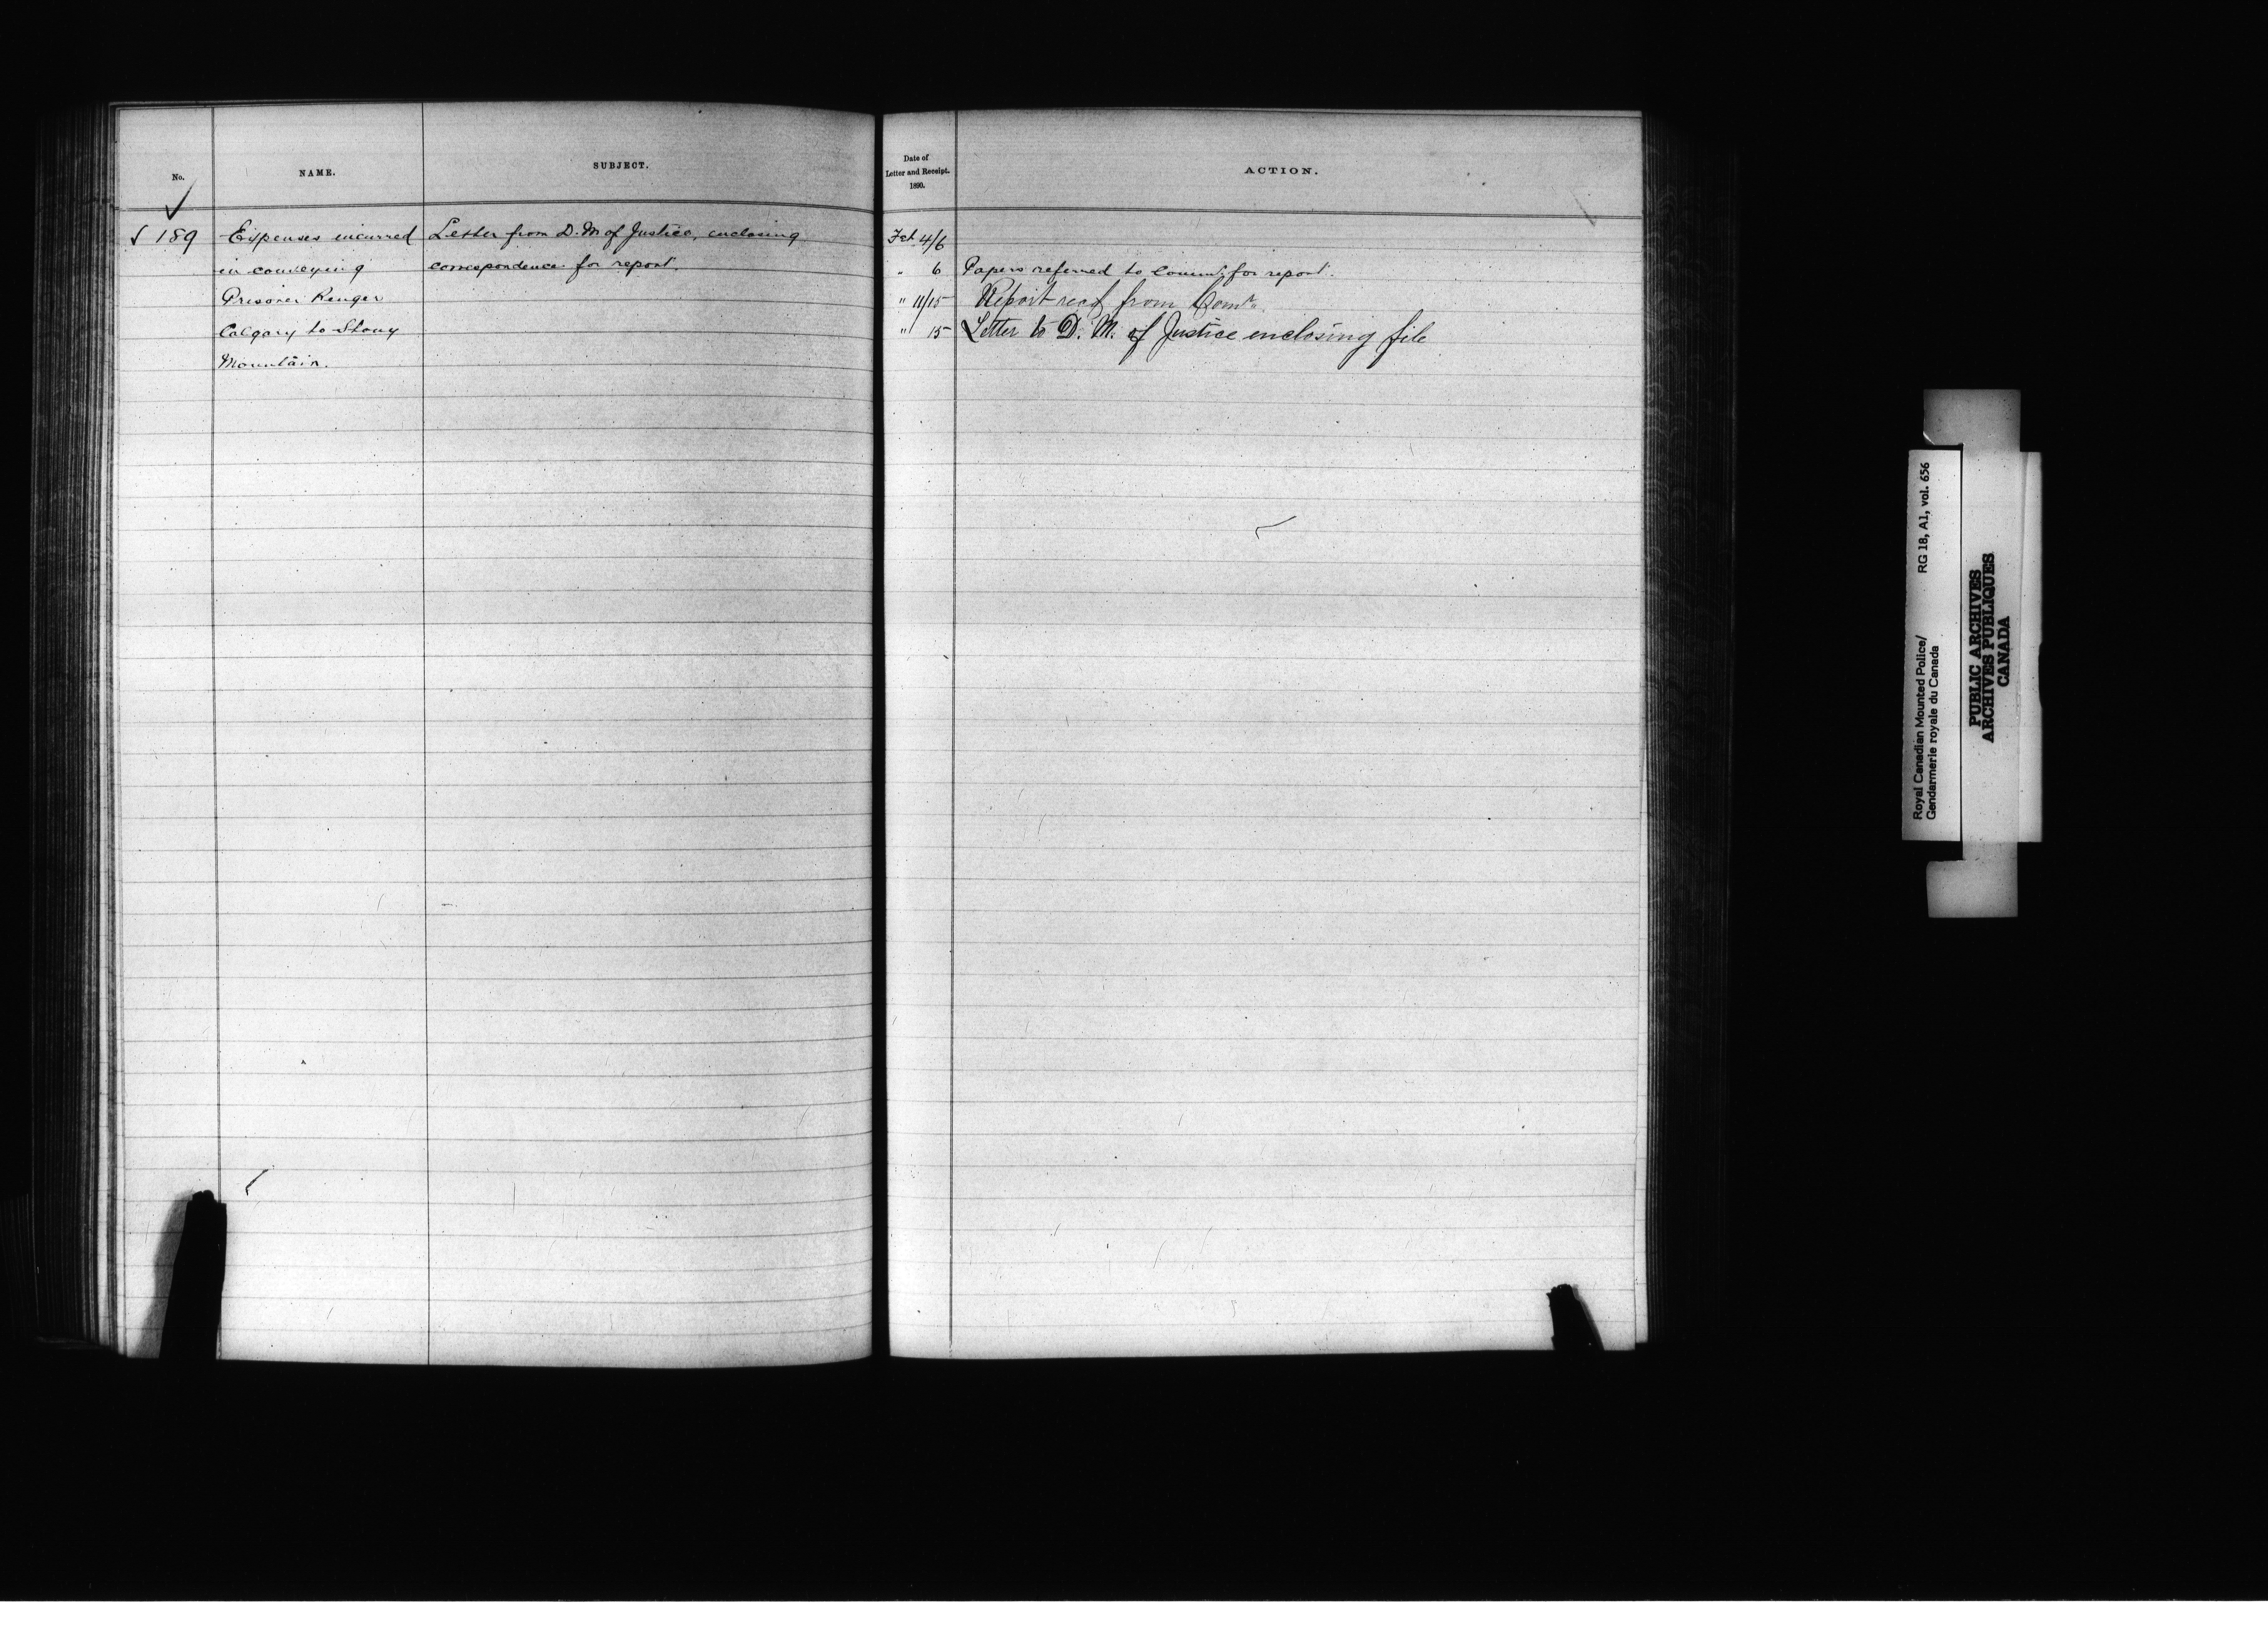 No.
NAME.
SUBJECT.
✓
√ 189
Expenses incurred
in conveying
Prisoner Renger
Calgary to Stony
Mountain.
Letter from D. M of Justice, enclosing
correspondence for report.
Date of
Letter and Receipt.
1890.
ACTION.
Feb 4/6
" 6 Papers referred to Commr. for report.
" 11/15 Report recd from Comr.
" 15 Letter to D. M. of Justice enclosing file
Royal Canadian Mounted Police/ RG 18, A1, vol. 656
Gendarmerie royale du Canada
PUBLIC ARCHIVES
ARCHIVES PUBLIQUES
CANADA